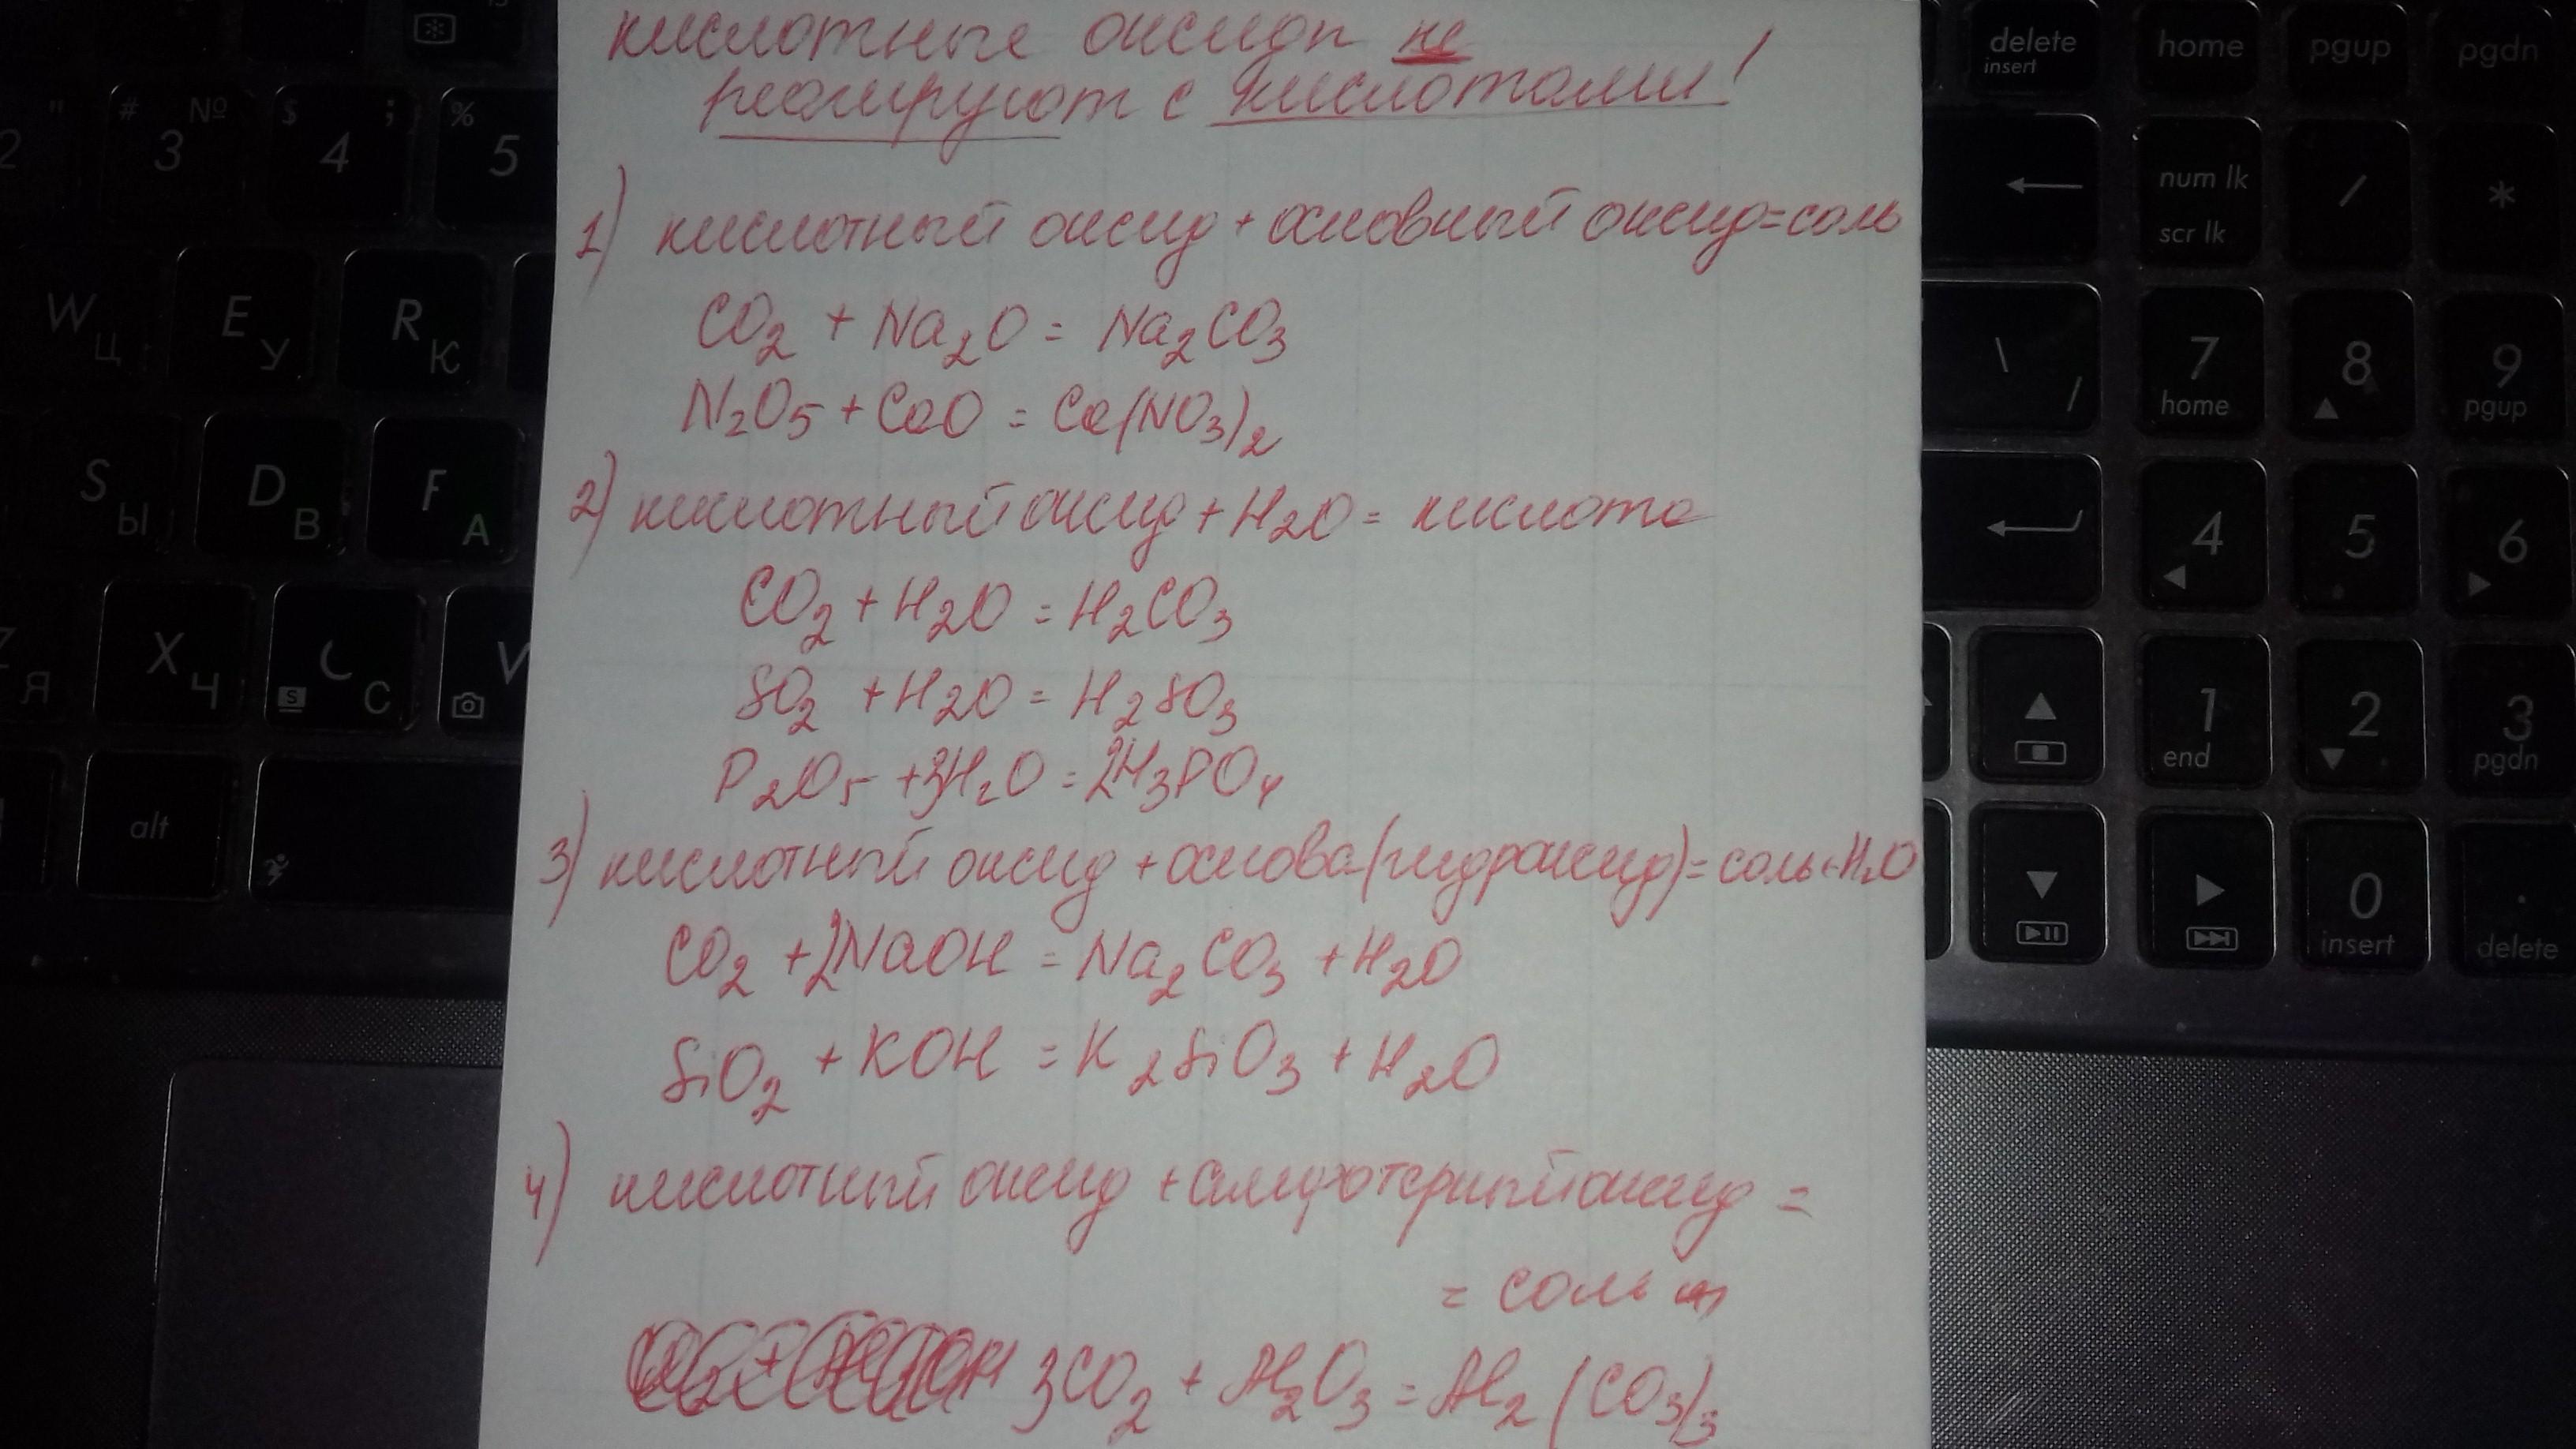 кислотные оксиды не
реагируют с кислотами!
1) кислотный оксид + основный оксид = соль
CO₂ + Na₂O = Na₂CO₃
N₂O₅ + CaO = Ca(NO₃)₂
2) кислотный оксид + H₂O = кислота
CO₂ + H₂O = H₂CO₃
SO₂ + H₂O = H₂SO₃
P₂O₅ + 3H₂O = 2H₃PO₄
3) кислотный оксид + основа (гидроксид) = соль + H₂O
CO₂ + 2NaOH = Na₂CO₃ + H₂O
SiO₂ + KOH = K₂SiO₃ + H₂O
4) кислотный оксид + амфотерный оксид =
= соль
3CO₂ + Al₂O₃ = Al₂(CO₃)₃
2 # № 3 $ ; 4 % 5
delete insert home pgup pgdn
num lk scr lk / *
W Ц E У R К
\ / 7 home 8 9 pgup
S Ы D В F А
4 5 6
Z Я X Ч С S V
1 end 2 3 pgdn
alt
0 insert . delete